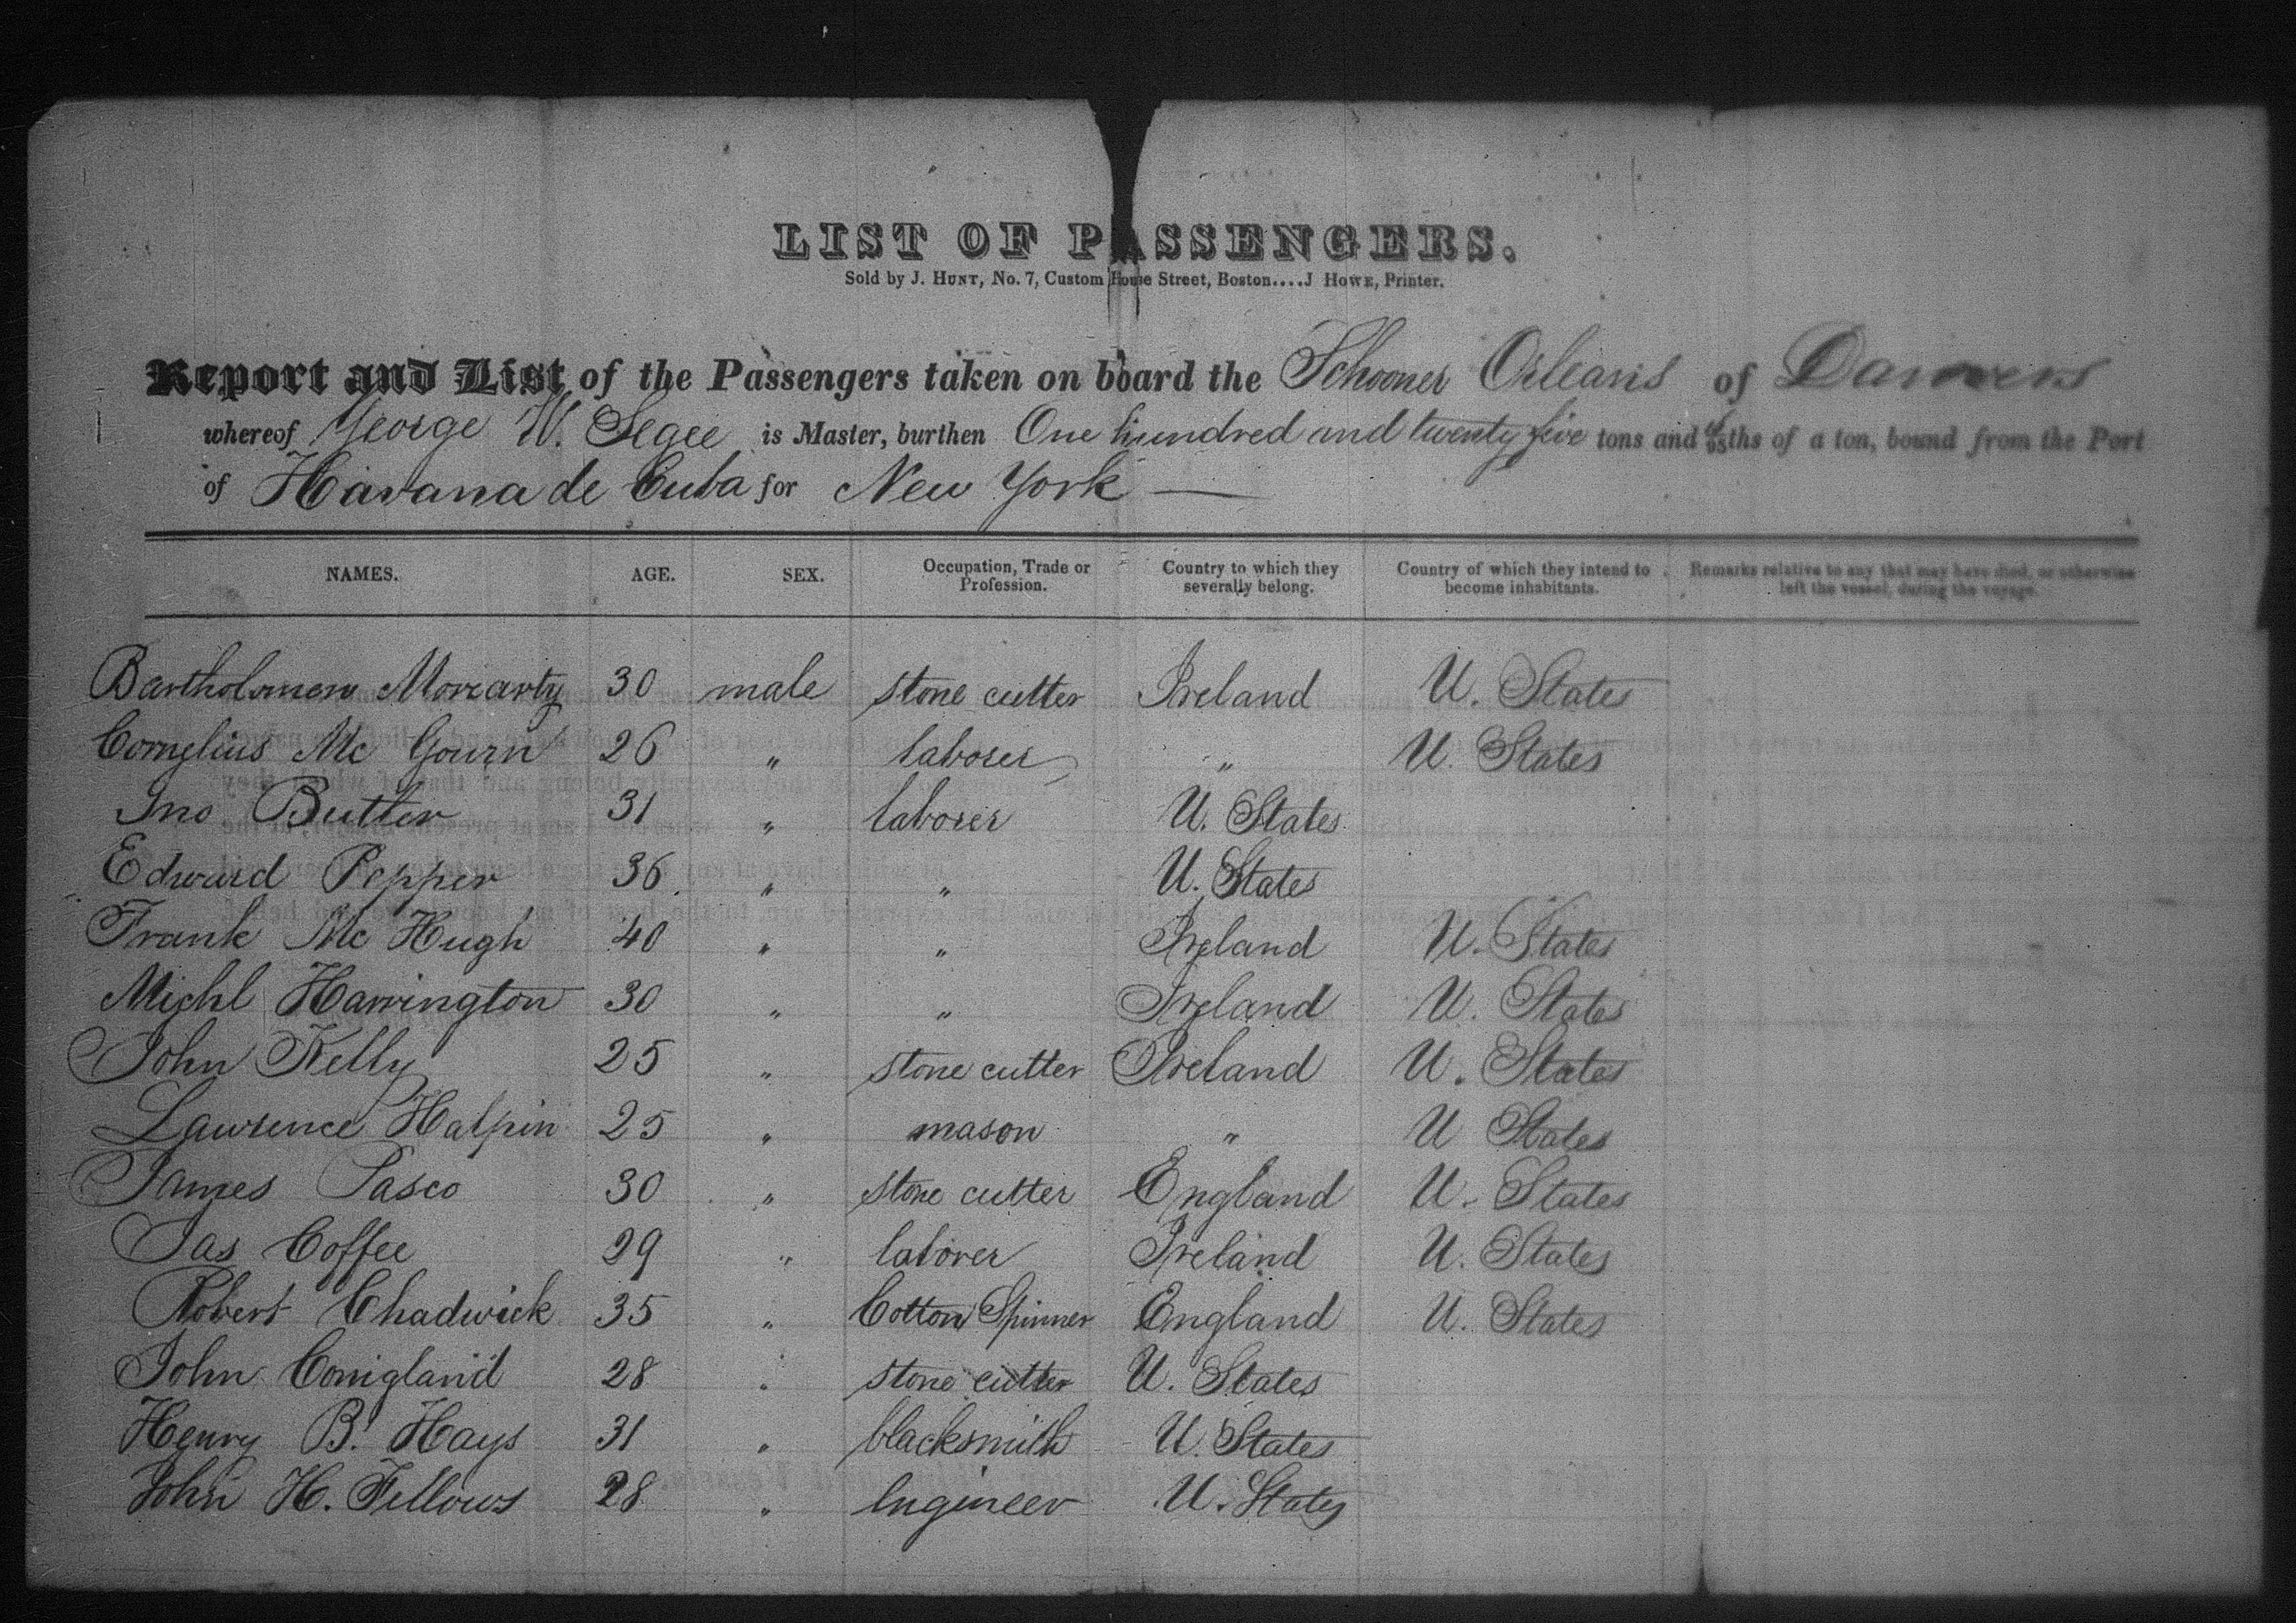 LIST OF PASSENGERS.
Sold by J. HUNT, No. 7, Custom House Street, Boston....J HOWE, Printer.
Report and List of the Passengers taken on board the Schooner Orleans of Danvers
whereof George W. Segee is Master, burthen One hundred and twenty five tons and 95ths of a ton, bound from the Port
of Havana de Cuba for New York —
NAMES. AGE. SEX. Occupation, Trade or Profession. Country to which they severally belong. Country of which they intend to become inhabitants. Remarks relative to any that may have died, or otherwise left the vessel, during the voyage.
Bartholomew Moriarty 30 male stone cutter Ireland U. States
Cornelius Mc Gourn 26 " laborer " U. States
Jno Butler 31 " laborer U. States
Edward Pepper 36 " " U. States
Frank Mc Hugh 40 " " Ireland U. States
Michl Harrington 30 " " Ireland U. States
John Kelly 25 " stone cutter Ireland U. States
Lawrence Halpin 25 " mason " U States
James Pasco 30 " stone cutter England U. States
Jas Coffee 29 " laborer Ireland U. States
Robert Chadwick 35 " Cotton Spinner England U. States
John Conigland 28 " stone cutter U. States
Henry B. Hays 31 " blacksmith U. States
John H. Fellows 28 " Engineer U. States